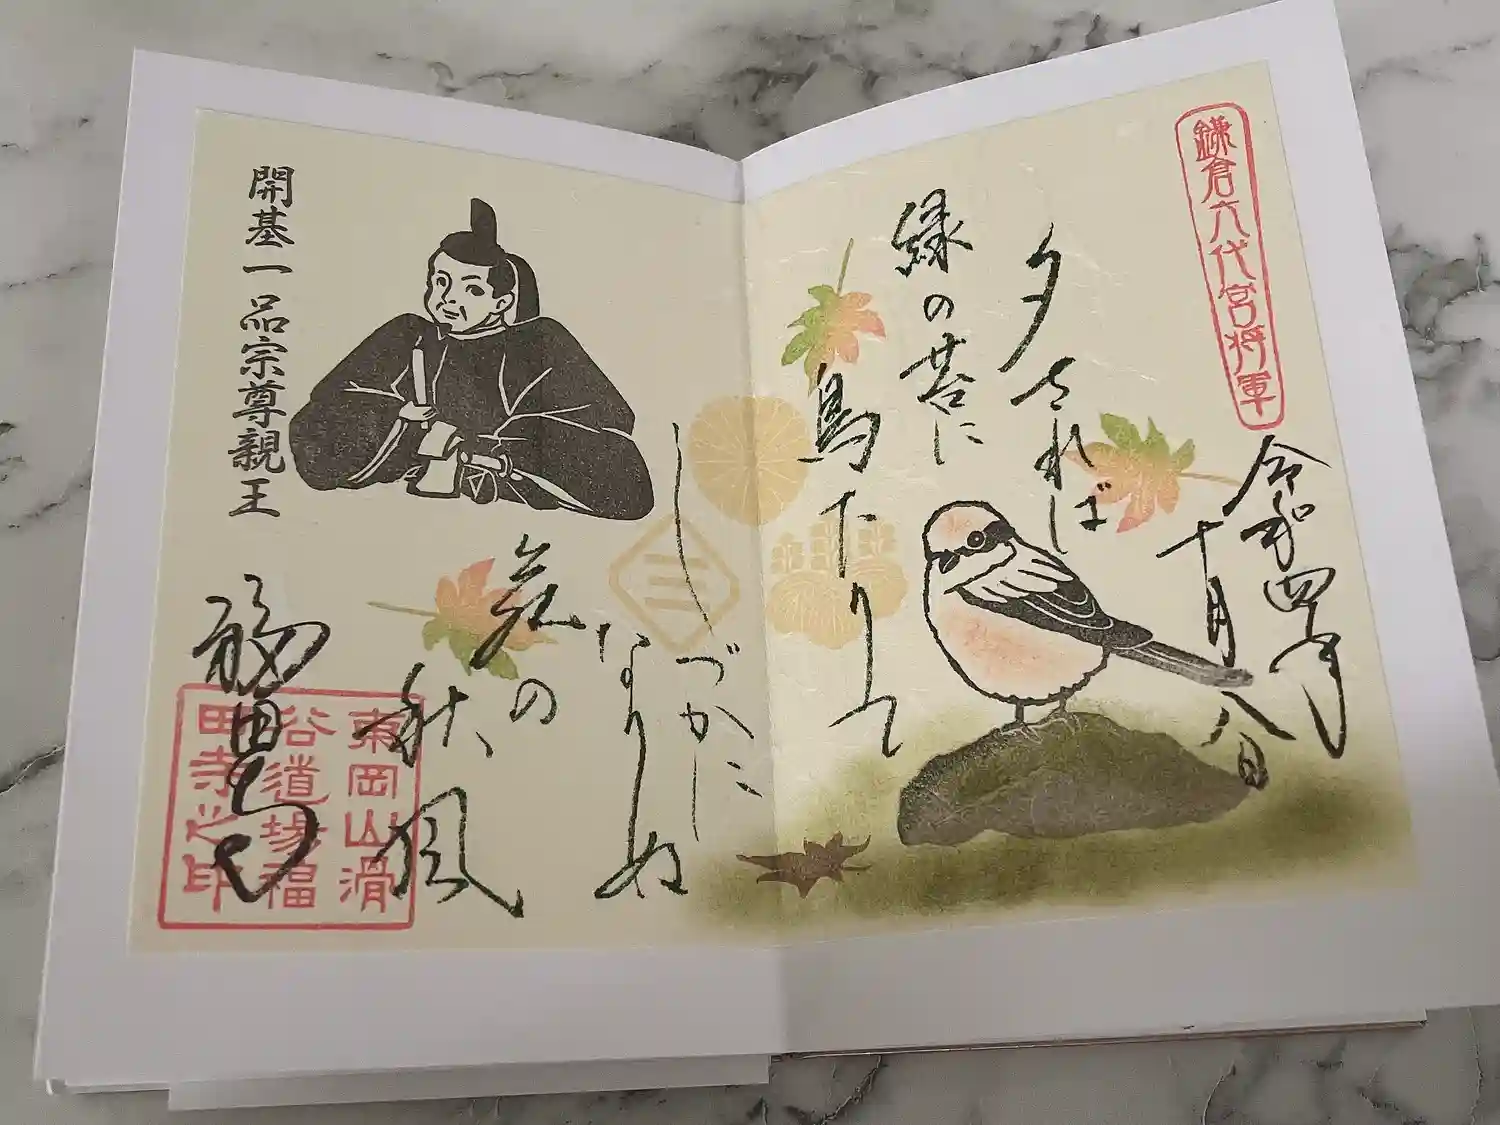 鎌倉六代宮将軍
令和四年
十月八日
夕されば
緑の苔に
鳥下りて
しづかに
なりぬ
苑の
秋風
三
開基一品宗尊親王
福田寺
東岡山滑
谷道場福
田寺之印